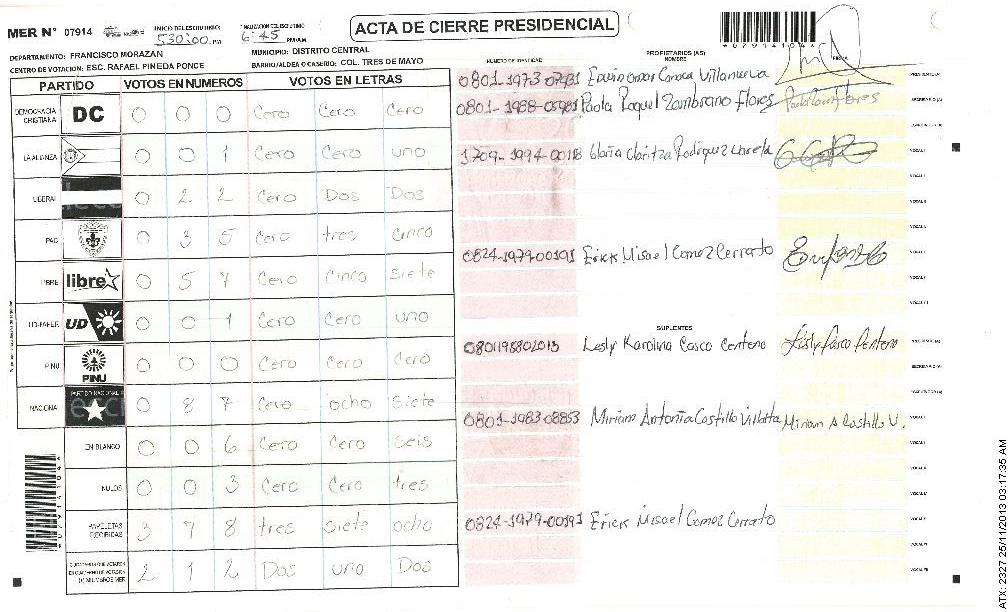 ACTA DE CIERRE PRESIDENCIAL
MER N° 07914
INICIO DEL ESCRUTINIO: 5:30:00 PM
FINALIZACION DEL ESCUTINIO 6:45 PM/AM
*07914104*
DEPARTAMENTO: FRANCISCO MORAZAN
MUNICIPIO: DISTRITO CENTRAL
CENTRO DE VOTACION: ESC. RAFAEL PINEDA PONCE
BARRIO/ALDEA O CASERIO: COL. TRES DE MAYO
PARTIDO VOTOS EN NUMEROS VOTOS EN LETRAS
DEMOCRACIA CRISTIANA DC 0 0 0 Cero Cero Cero
LA ALIANZA 0 0 1 Cero Cero uno
LIBERAL 0 2 2 Cero Dos Dos
PAC 0 3 5 Cero tres cinco
LIBRE libre 0 5 7 Cero Cinco siete
UD-FAPER UD 0 0 1 Cero Cero uno
PINU PINU 0 0 0 Cero Cero Cero
NACIONAL 0 8 7 Cero ocho siete
EN BLANCO 0 0 6 Cero Cero seis
NULOS 0 0 3 Cero Cero tres
PAPELETAS RECIBIDAS 3 7 8 tres siete ocho
2 1 2 Dos uno Dos
NUMERO DE IDENTIDAD PROPIETARIOS (AS) NOMBRE FIRMA
0801-1973-07931 Villanueva PRESIDENTE(A)
Paola Raquel Zambrano Flores SECRETARIO(A)
1709-1994-00118 Gloria Claritza Rodriguez VOCAL I
0824-1979-00191 Erick Misael Gomez Cerrato
SUPLENTES
0801198802013 Lesly Karolina Casco Centeno Lesly Casco Centeno
0801-1983-08853 Miriam Antonia Castillo Villatta Miriam A Castillo V.
0824-1979-00191 Erick Misael Gomez Cerrato
*07914104*
ATX: 2327 25/11/2013 03:17:35 AM